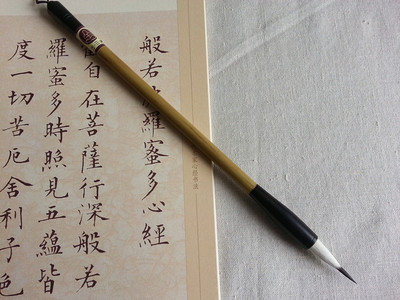 般若波羅蜜多心經
觀自在菩薩行深般若
羅蜜多時照見五蘊皆
度一切苦厄舍利子色